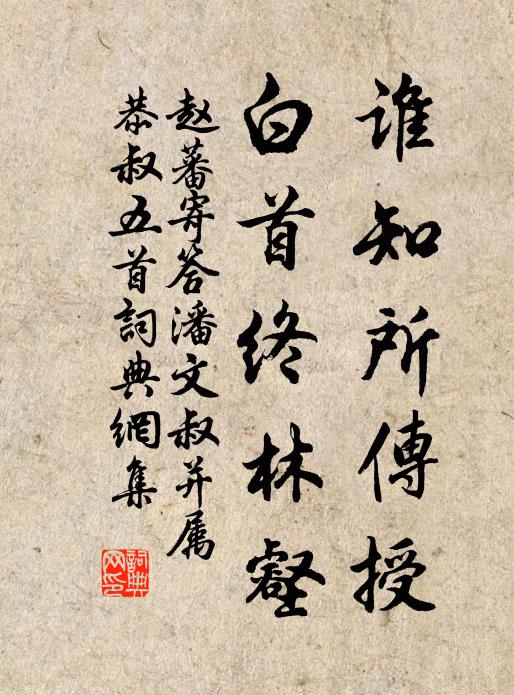 誰知所傳授
白首終林壑
赵蕃寄答潘文叔并属
恭叔五首詞典網集
詞典
网印